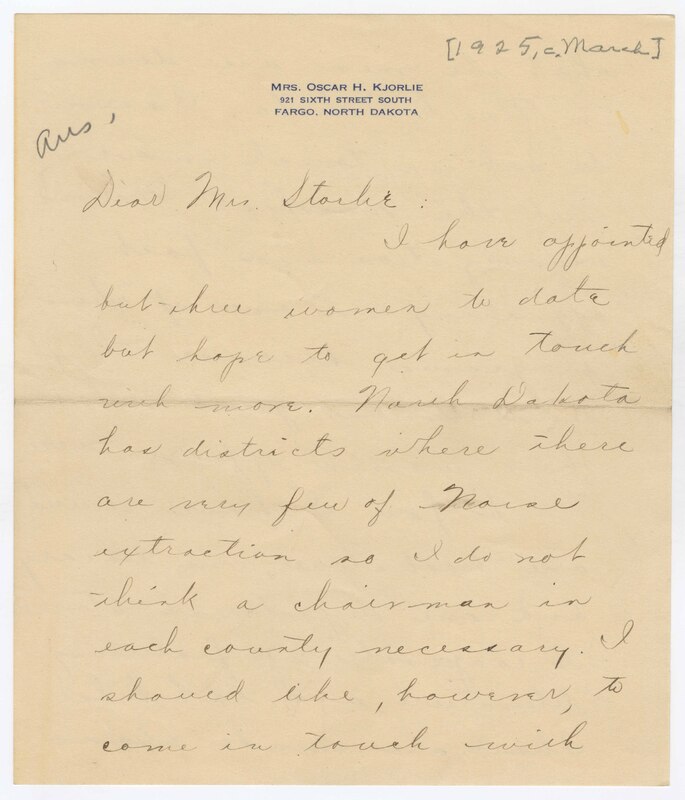 [1925, c. March]
MRS. OSCAR H. KJORLIE
921 SIXTH STREET SOUTH
FARGO, NORTH DAKOTA
Ans,
Dear Mrs. Storlie:
I have appointed
but three women to date
but hope to get in touch
with more. North Dakota
has districts where there
are very few of Norse
extraction so I do not
think a chairman in
each county necessary. I
shoued like, however, to
come in touch with